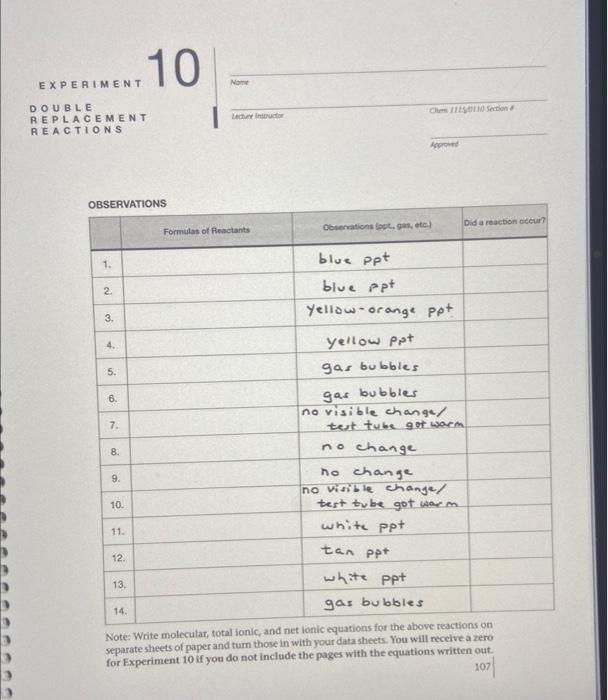 EXPERIMENT 10
DOUBLE
REPLACEMENT
REACTIONS
Name
Lecture Instructor
Chem 1115/0110 Section #
Approved
OBSERVATIONS
Formulas of Reactants Observations (ppt., gas, etc.) Did a reaction occur?
1. blue ppt
2. blue ppt
3. Yellow-orange ppt
4. yellow ppt
5. gas bubbles
6. gas bubbles
7. no visible change/
test tube got warm
8. no change
9. no change
10. no visible change/
test tube got warm
11. white ppt
12. tan ppt
13. white ppt
14. gas bubbles
Note: Write molecular, total ionic, and net ionic equations for the above reactions on
separate sheets of paper and turn those in with your data sheets. You will receive a zero
for Experiment 10 if you do not include the pages with the equations written out.
107